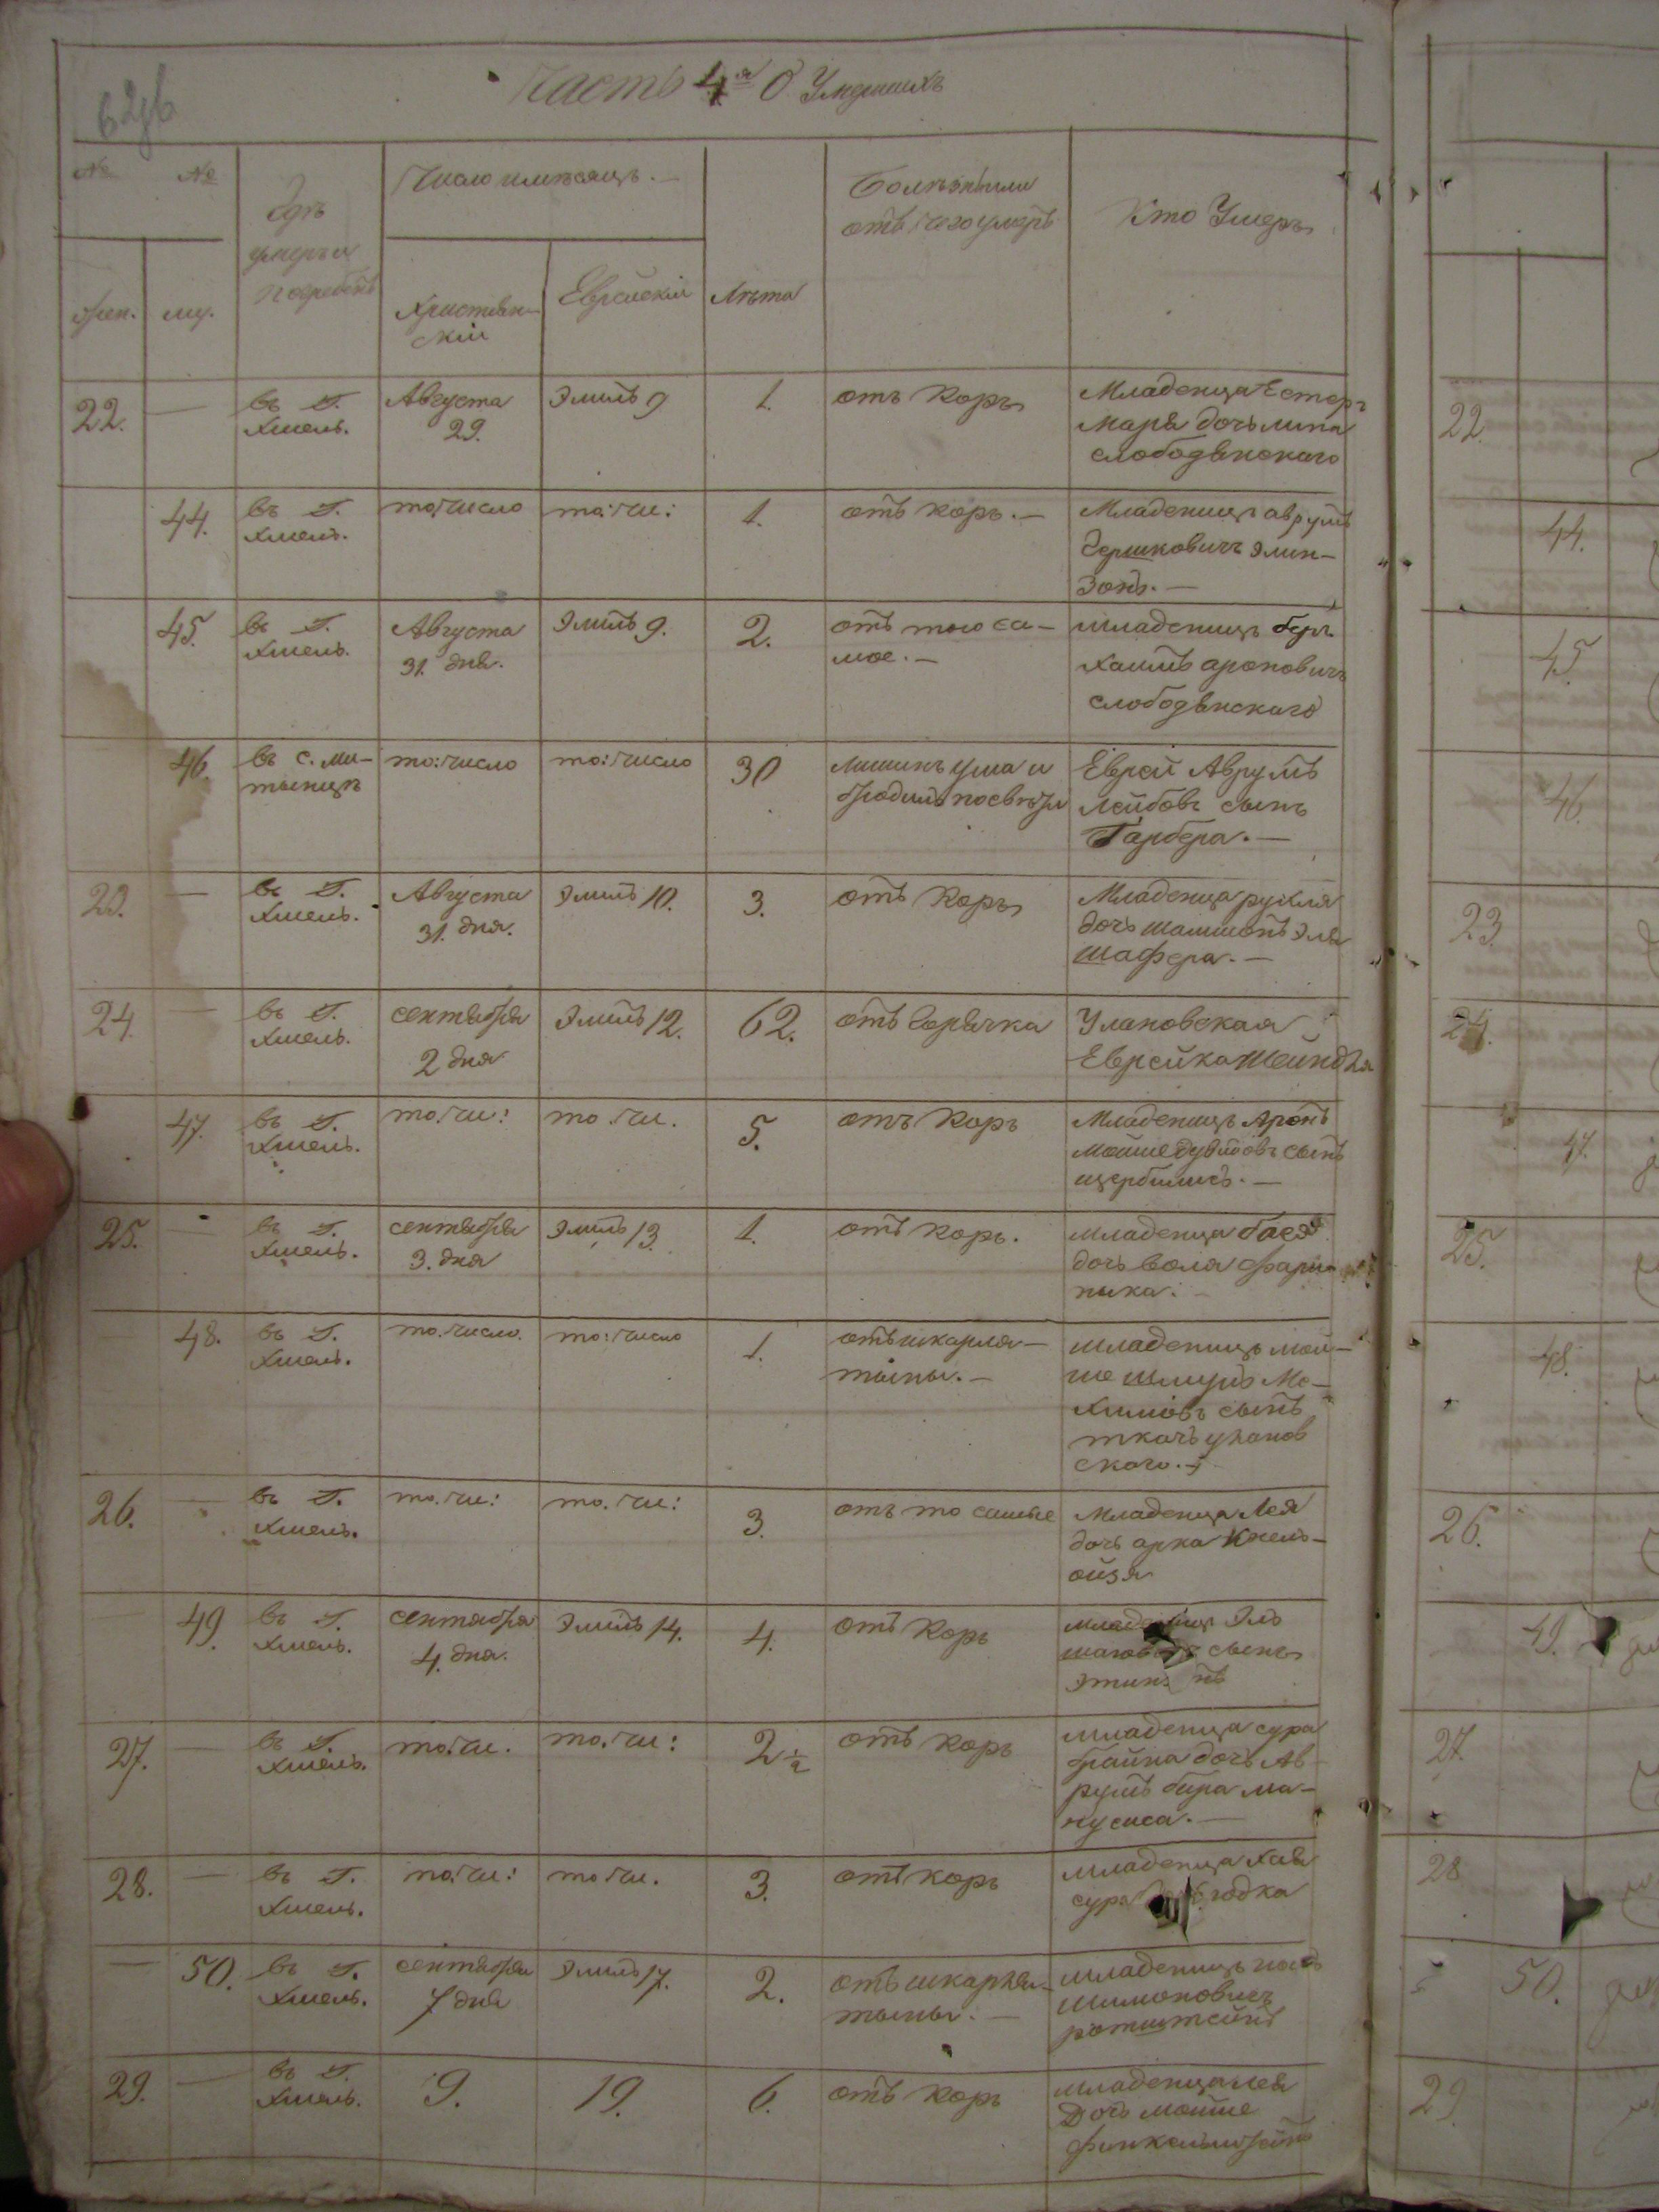 Часть 4я О Умершихъ
№ №
Гдѣ умеръ и погребенъ
Число и мѣсяцъ.
Болезнь или отъ чего умеръ
Кто Умеръ
жен. му.
Христіянскій
Еврейскій
Лѣта
22. — въ Г. Хмель. Августа 29. Элюль 9 1. отъ Коръ Младенца Естеръ
Маря дочь липа
слободянского
44. въ Г. Хмель. то: число то: чи: 1. отъ коръ. — Младенецъ аврумъ
Гершковичъ Элин-
зонъ. —
45. въ Г. Хмель. Августа 31. дня. Элюль 9. 2. отъ того са-
мое. — младенецъ берл
хаимъ ароновичъ
слободянского
46. въ с. Ми-
тынцѣ то: число то: число 30 лишинъ ума и
бродилъ по свѣту Еврей Аврумъ
Лейбовъ сынъ
Гарбера. —
23. — въ Г. Хмель. Августа 31. дня. Элюль 10. 3. отъ Коръ Младенца рухля
дочь шамшонъ Эля
шафера. —
24. — въ Г. Хмель. сентября 2 дня Элюль 12. 62. отъ Горячка Улановская
Еврейка Шейндля
47. въ Г. Хмель. то. чи: то. чи. 5. отъ Коръ Младенецъ Аронъ
мойше дувидовъ сынъ
25. — въ Г. Хмель. сентября 3. дня Элюль 13. 1. отъ коръ. Младенца бася
дочь вола
48. въ Г. Хмель. то. число. то: число 1. отъ шкарля-
тыны. — младенецъ мой-
ше шмулъ Ме-
хлиовъ сынъ
ткачъ уланов
ского. —
26. — въ Г. Хмель. то. чи: то. чи: 3. отъ то самые Младенца Лея
дочь арка
49. въ Г. Хмель. сентября 4. дня. Элюль 14. 4. отъ Коръ
сынъ
27. — въ Г. Хмель. то. чи. то. чи: 2 1/2 отъ коръ младенца сура
брайна дочь Ав
румъ бера ма-
28. — въ Г. Хмель. то. чи: то чи. 3. отъ коръ младенца хая
сура
— 50. въ Г. Хмель. сентября 7 дня Элюль 17. 2. отъ шкарля-
тыны. — младенецъ
Шимоновичъ
ротштейнъ
29. — въ Г. Хмель. 9. 19. 6. отъ коръ младенца лея
Дочь мойше
финкельштейнъ
22.
44.
45.
46.
23.
24.
47.
25.
48.
26.
49.
27.
28
50.
29.